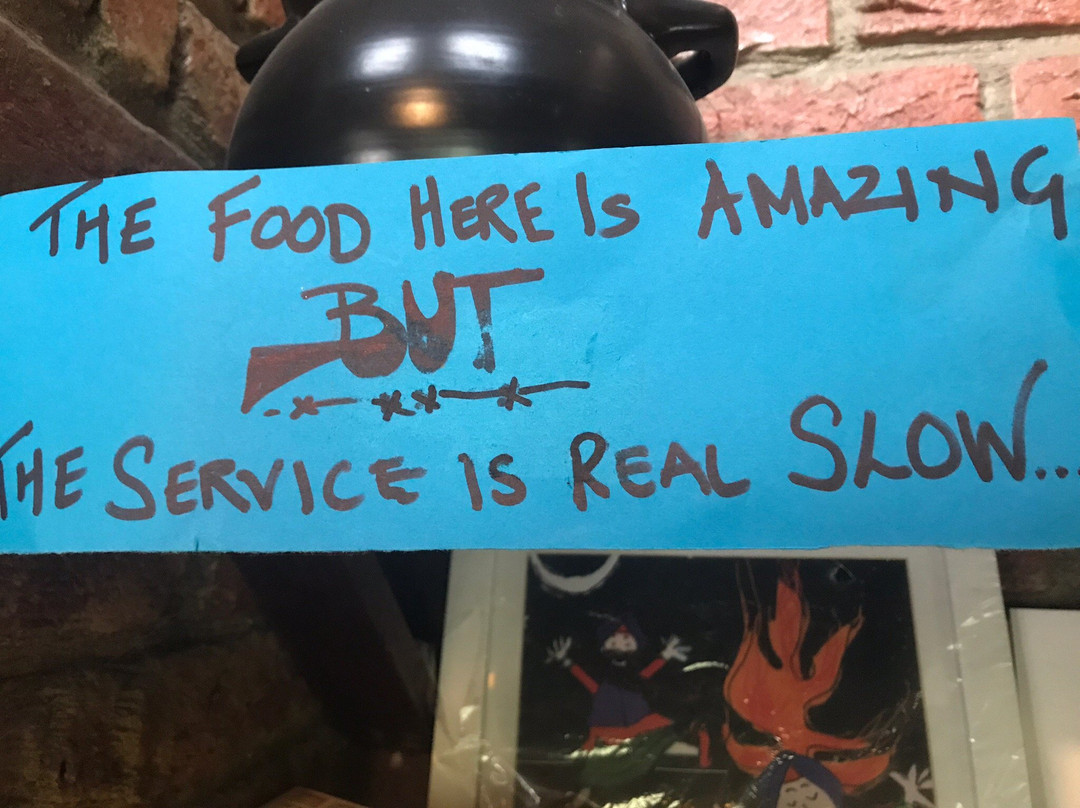 THE FOOD HERE IS AMAZING
BUT
THE SERVICE IS REAL SLOW...